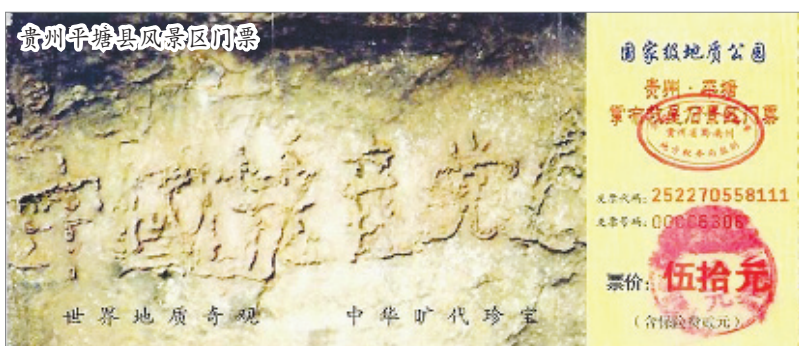 贵州平塘县风景区门票
世界地质奇观 中华旷代珍宝
国家级地质公园
贵州·平塘
掌布救星石景区门票
贵州省黔南州
地方税务局监制
发票代码：252270558111
发票号码：00006306
票价：伍拾元
（含保险费贰元）